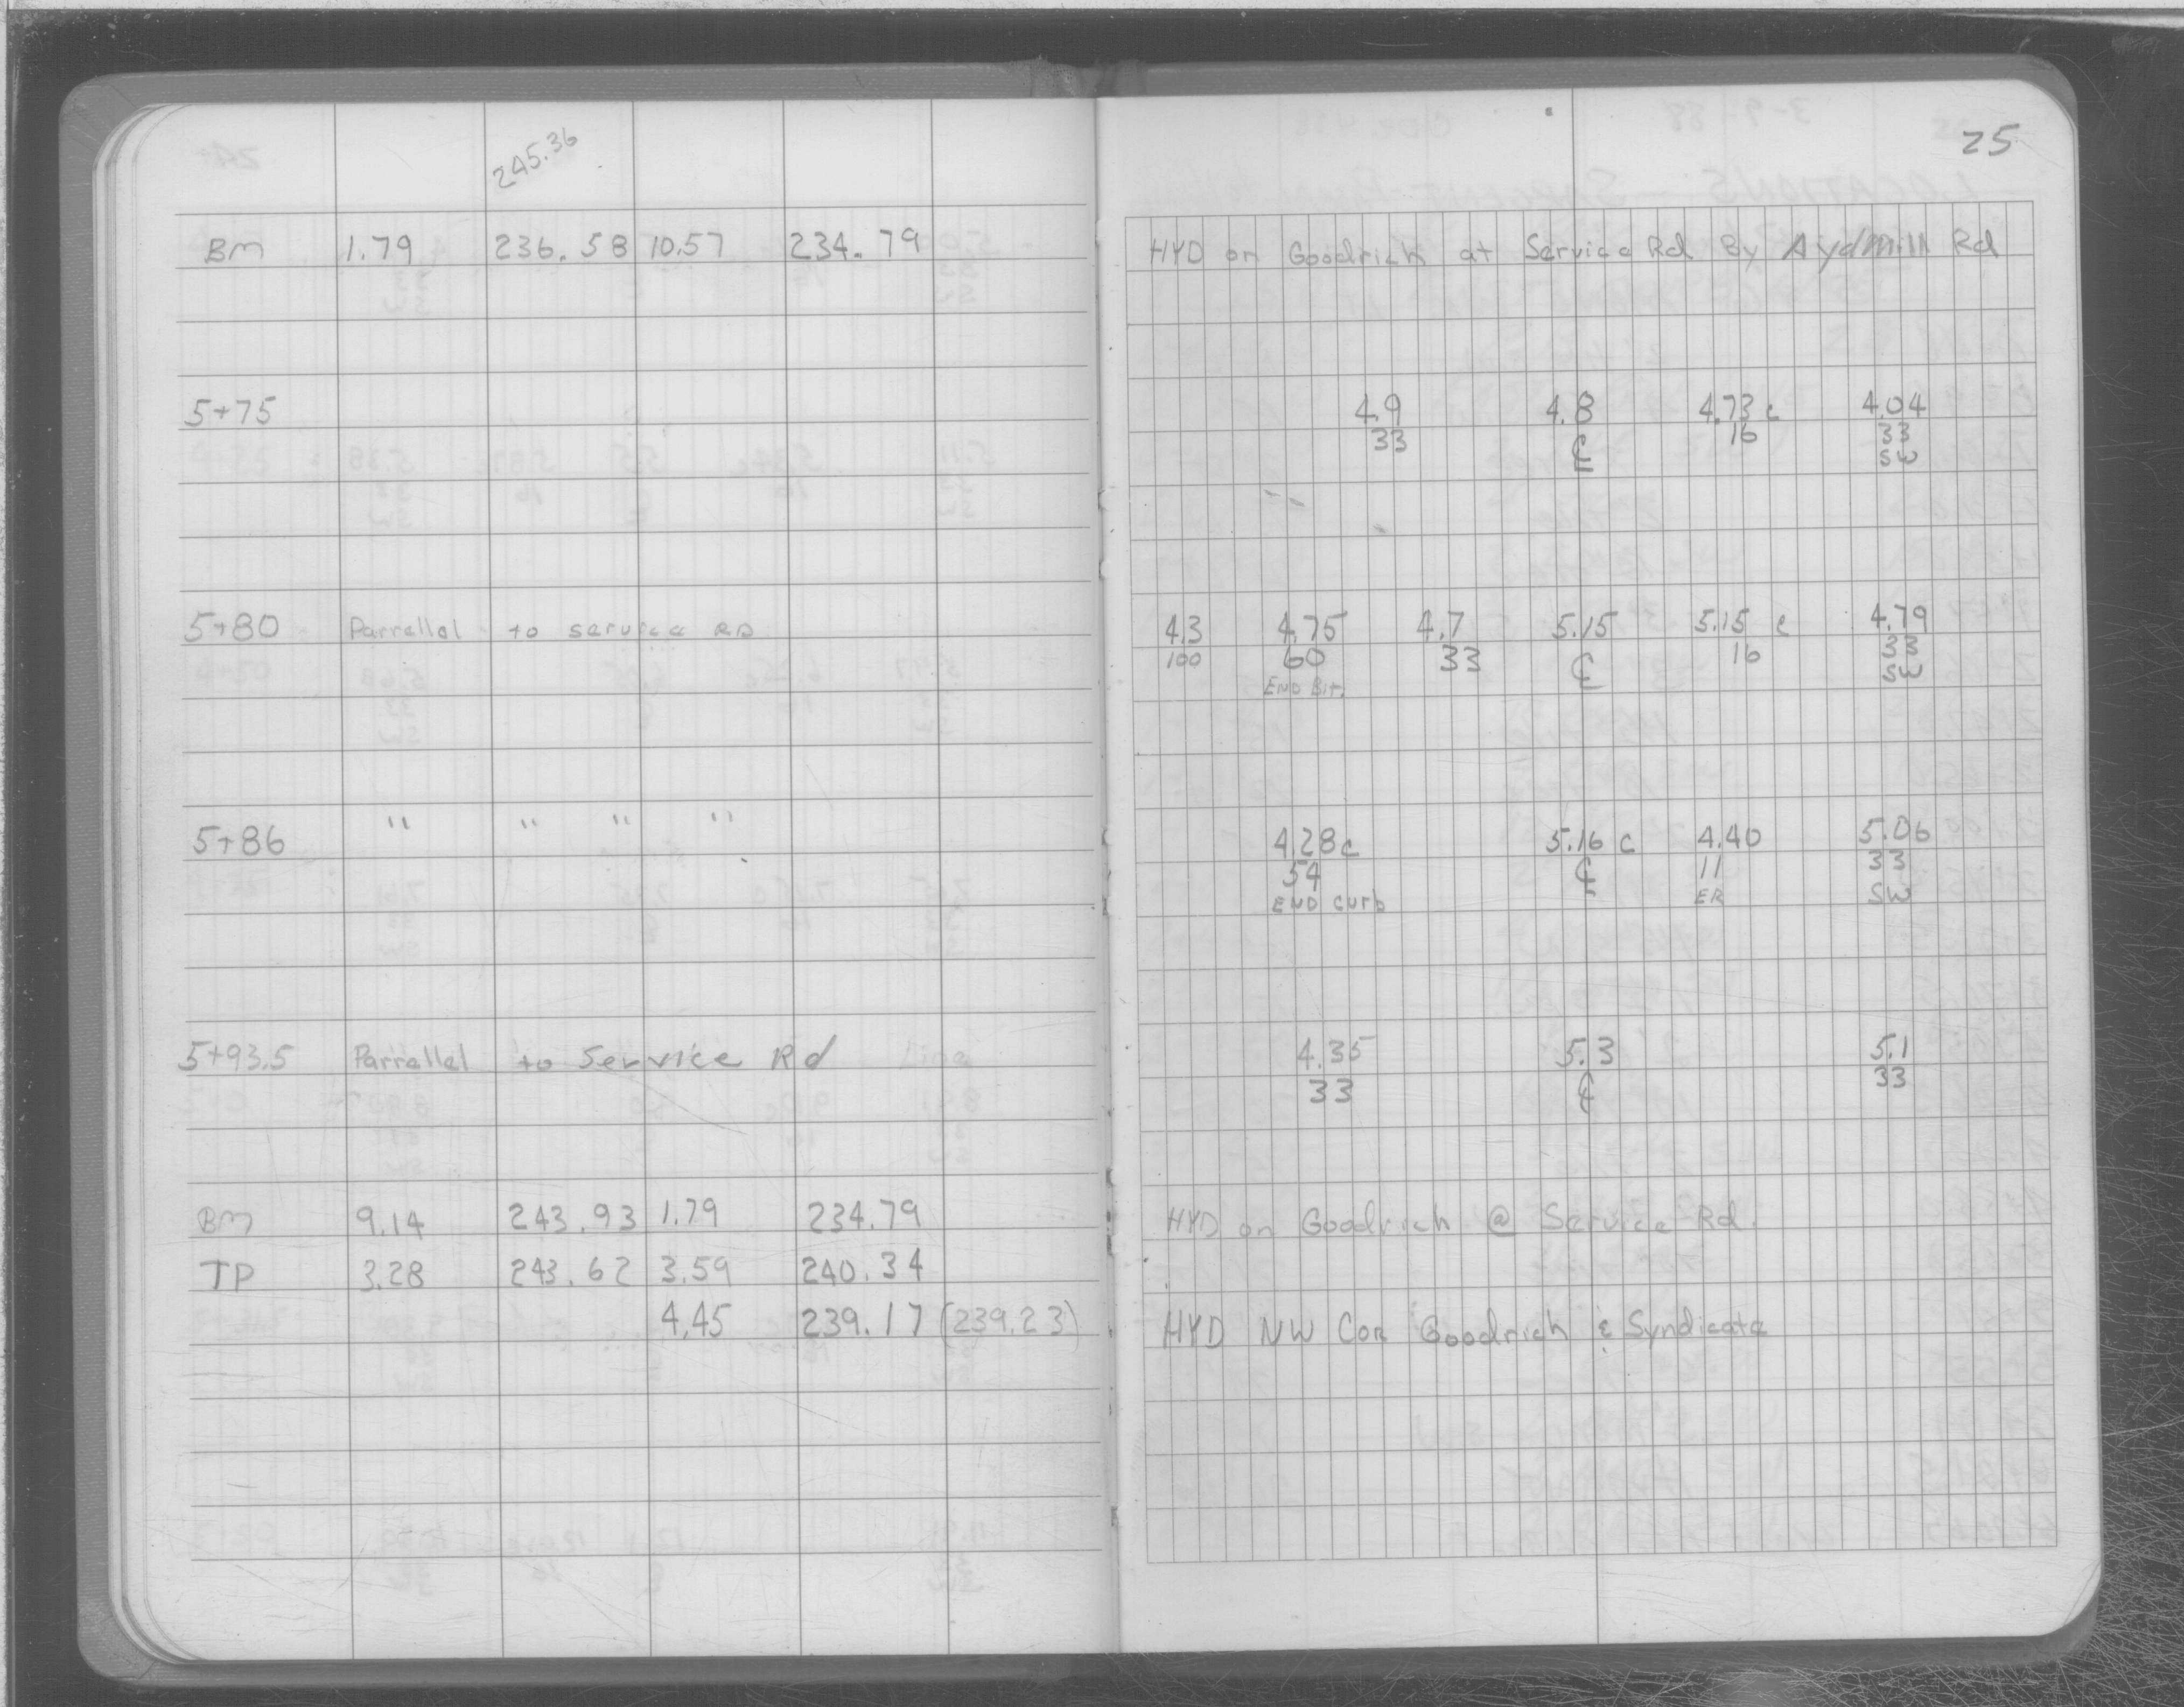 245.36
25
BM 1.79 236.58 10.57 234.79 HYD on Goodrich at Service Rd By Aydmill Rd
5+75 4.9 4.8 4.73 c 4.04
33 ℄ 16 33
SW
5+80 Parrellel to service RD 4.3 4.75 4.7 5.15 5.15 c 4.79
100 60 33 ℄ 16 33
END Bit. SW
5+86 " " " " 4.28c 5.16 c 4.40 5.06
54 ℄ 11 33
END curb ER SW
5+93.5 Parrellel to Service Rd 4.35 5.3 5.1
33 ℄ 33
BM 9.14 243.93 1.79 234.79 HYD on Goodrich @ Service Rd.
TP 3.28 243.62 3.59 240.34
4.45 239.17 (239.23) HYD NW Cor Goodrich & Syndicate